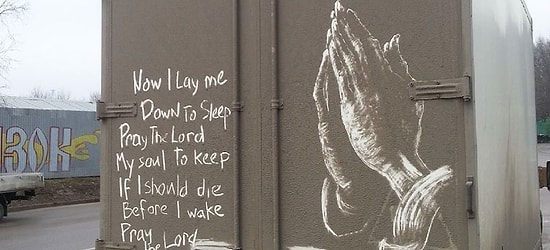 Now I lay me
Down To Sleep
Pray The Lord
My soul to keep
If I should die
Before I wake
Pray
The Lord
ЗОН